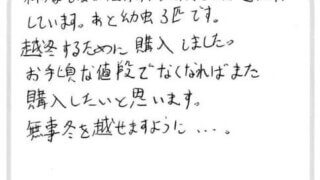 しています。あと幼虫3匹です。
越冬するために購入しました。
お手頃な値段でなくなればまた
購入したいと思います。
無事冬を越せますように・・・。